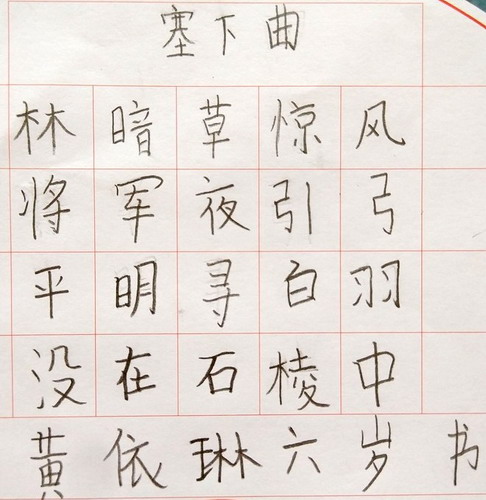 塞下曲
林暗草惊风
将军夜引弓
平明寻白羽
没在石棱中
黄依琳六岁书